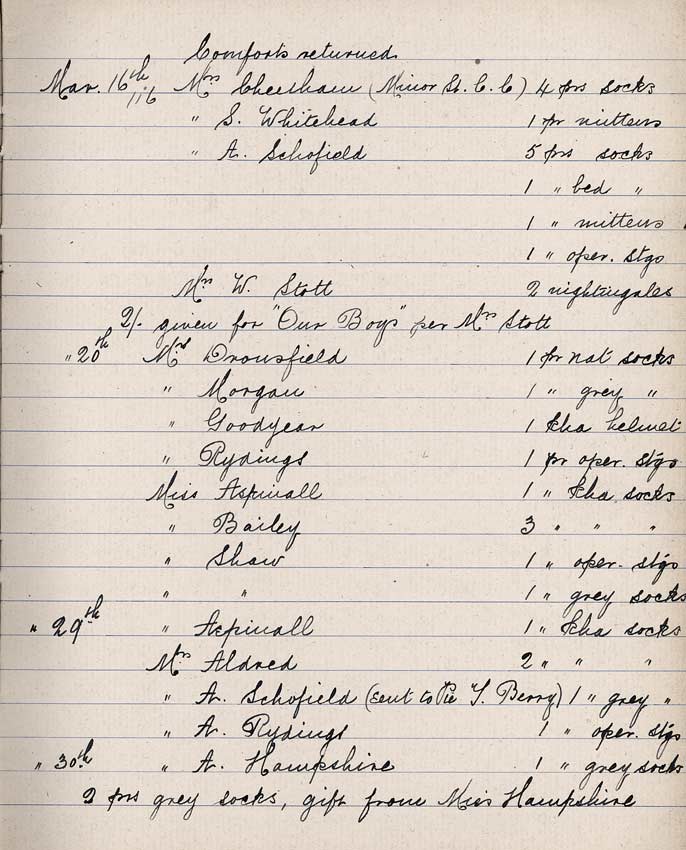 Comforts returned.
Mar. 16th /16 Mrs Cheetham (Minor St. C. C) 4 prs socks
" S. Whitehead 1 pr mittens
" A. Schofield 5 prs socks
1 " bed "
1 " mittens
1 " oper. stgs
Mrs W. Stott 2 nightingales
2/- given for "Our Boys" per Mrs Stott
" 20th Mrs Dronsfield 1 pr nat socks
" Morgan 1 " grey "
" Goodyear 1 kha helmet
" Rydings 1 pr oper. stgs
Miss Aspinall 1 " kha socks
" Bailey 3 " " "
" Shaw 1 " oper. stgs
" " 1 " grey socks
" 29th " Aspinall 1 " kha socks
Mrs Aldred 2 " " "
" A. Schofield (sent to Pte T. Berry) 1 " grey "
" A. Rydings 1 " oper. stgs
" 30th " A. Hampshire 1 " grey socks
2 prs grey socks, gift from Miss Hampshire